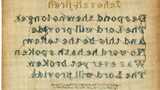 Jehovah-jireh
Despond then no longer
The Lord will provide
And this be the token,
No word he hath spoken
Was ever yet broken
The Lord will provide.